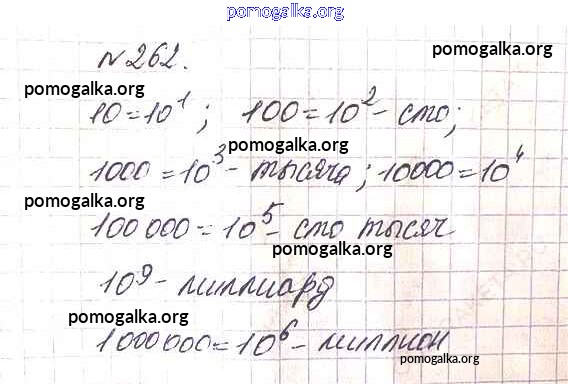 pomogalka.org
№262.
pomogalka.org
pomogalka.org
10=10¹; 100=10²- сто;
pomogalka.org
1000=10³- тысяча; 10000=10⁴
pomogalka.org
100 000=10⁵- сто тысяч
pomogalka.org
10⁹- миллиард
pomogalka.org
1000000=10⁶- миллион
pomogalka.org